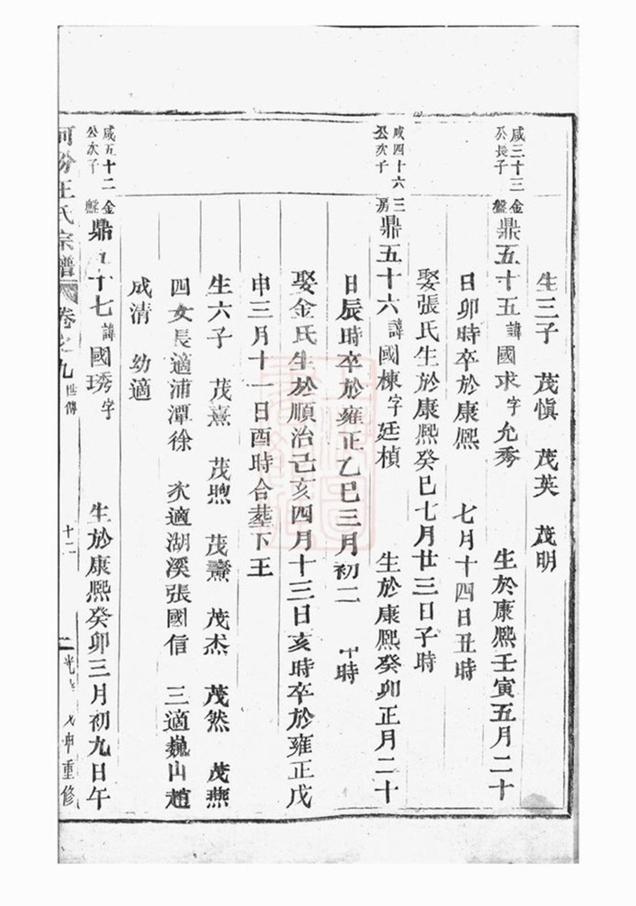 生三子 茂愼 茂英 茂明
咸三十三 金
公長子 盤 鼎五十五 諱 國求 字 允秀 生於康熙壬寅五月二十
日卯時卒於康熙 七月十四日丑時
娶張氏生於康熙癸巳七月廿三日子時
咸四十六 三
公次子 房 鼎五十六 諱 國棟 字 廷楨 生於康熙癸卯正月二十
日辰時卒於雍正乙巳三月初二 午時
娶金氏生於順治己亥四月十三日亥時卒於雍正戊
申三月十一日酉時合塟下王
生六子 茂熹 茂煦 茂燾 茂杰 茂然 茂燕
四女長適浦潭徐 次適湖溪張國信 三適巍山趙
成清 幼適
咸五十二 金
公次子 盤 鼎五十七 諱 國琇 字 生於康熙癸卯三月初九日午
河汾王氏宗譜 卷之九 世傳 十二 光 戊申重修